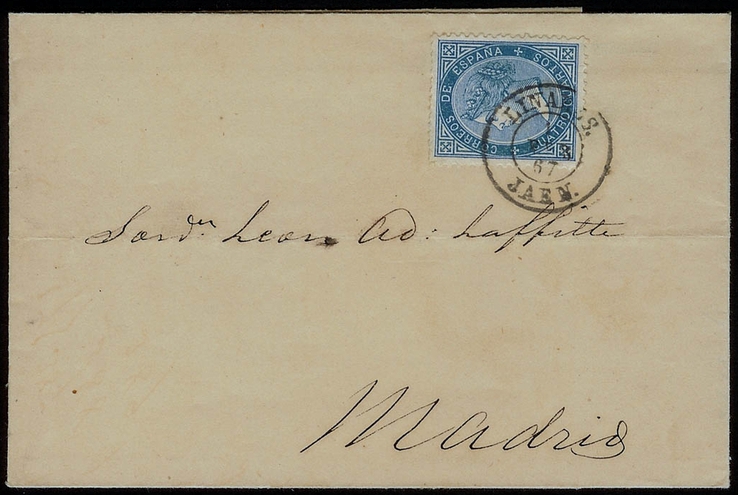 CORREOS DE ESPAÑA
CUATRO CUARTOS
LINARES.
67
JAEN.
Leon Ad: Laffitte
Madrid